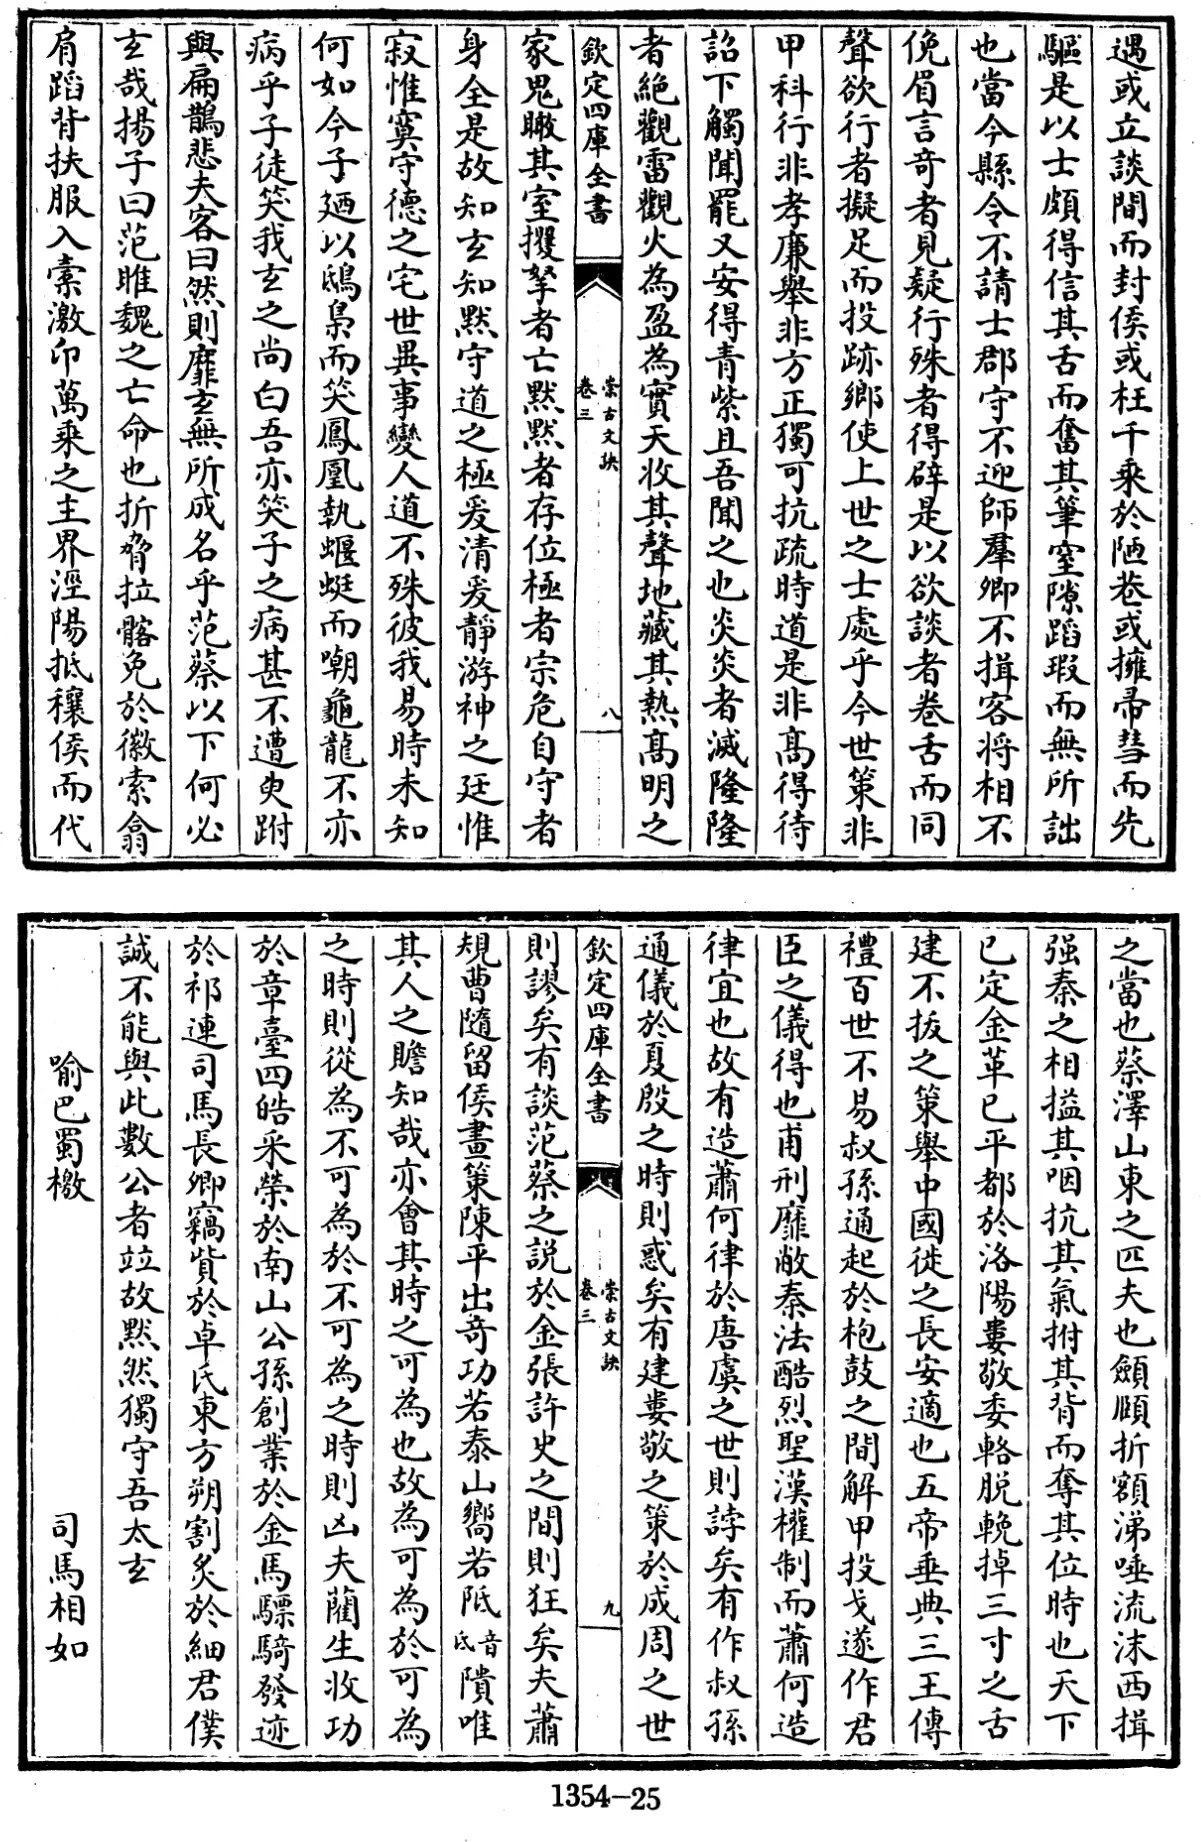 遇或立談間而封侯或枉千乘於陋巷或擁帚彗而先
驅是以士頗得信其舌而奮其筆窒隙蹈瑕而無所詘
也當今縣令不請士郡守不迎師羣卿不揖客將相不
俛眉言奇者見疑行殊者得辟是以欲談者卷舌而同
聲欲行者擬足而投跡鄉使上世之士處乎今世策非
甲科行非孝廉舉非方正獨可抗疏時道是非髙得待
詔下觸聞罷又安得青紫且吾聞之也炎炎者滅隆隆
者絶觀雷觀火為盈為實天收其聲地藏其熱髙明之
欽定四庫全書
崇古文訣
卷三
八
家鬼瞰其室攫拏者亡黙黙者存位極者宗危自守者
身全是故知玄知黙守道之極爰清爰靜游神之廷惟
寂惟寞守德之宅世異事變人道不殊彼我易時未知
何如今子廼以鴟梟而笑鳳凰執蝘蜓而嘲龜龍不亦
病乎子徒笑我玄之尚白吾亦笑子之病甚不遭臾跗
與扁鵲悲夫客曰然則靡玄無所成名乎范蔡以下何必
玄哉揚子曰范雎魏之亡命也折脅拉髂免於徽索翕
肩蹈背扶服入橐激卬萬乘之主界涇陽抵穰侯而代
之當也蔡澤山東之匹夫也顩頤折額涕唾流沫西揖
强秦之相搤其咽抗其氣拊其背而奪其位時也天下
已定金革已平都於洛陽婁敬委輅脱輓掉三寸之舌
建不拔之策舉中國徙之長安適也五帝垂典三王傳
禮百世不易叔孫通起於枹鼓之間解甲投戈遂作君
臣之儀得也甫刑靡敝秦法酷烈聖漢權制而蕭何造
律宜也故有造蕭何律於唐虞之世則誖矣有作叔孫
通儀於夏殷之時則惑矣有建婁敬之策於成周之世
欽定四庫全書
崇古文訣
卷三
九
則謬矣有談范蔡之説於金張許史之間則狂矣夫蕭
規曹隨留侯畫策陳平出奇功若泰山嚮若阺音氐隤唯
其人之贍知哉亦會其時之可為也故為可為於可為
之時則從為不可為於不可為之時則凶夫藺生收功
於章臺四皓采榮於南山公孫創業於金馬驃騎發迹
於祁連司馬長卿竊貲於卓氏東方朔割炙於細君僕
誠不能與此數公者竝故黙然獨守吾太玄
喻巴蜀檄 司馬相如
1354-25